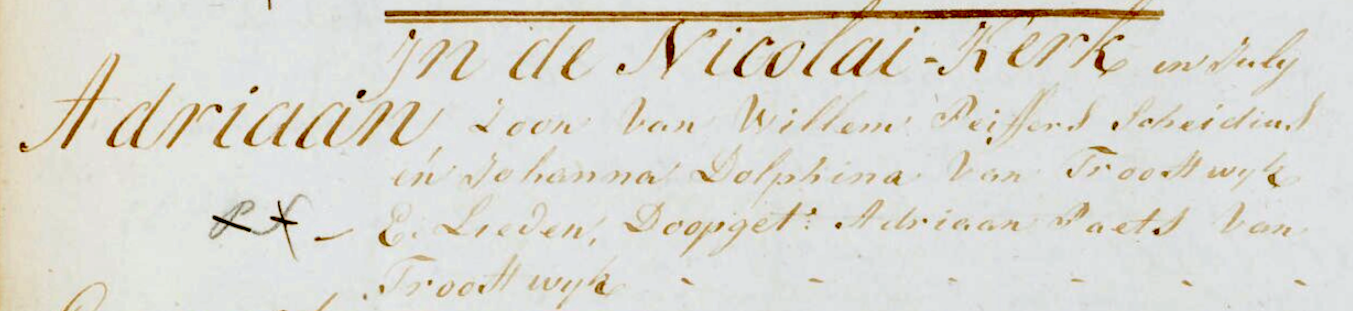 Jn de Nicolai-Kerk in July
Adriaan, Zoon Van Willem Peiffers Scheidius
en Johanna Dolphina Van Troostwyk
E. Lieden, Doopget: Adriaan Paets Van
Troostwyk - - - - - -